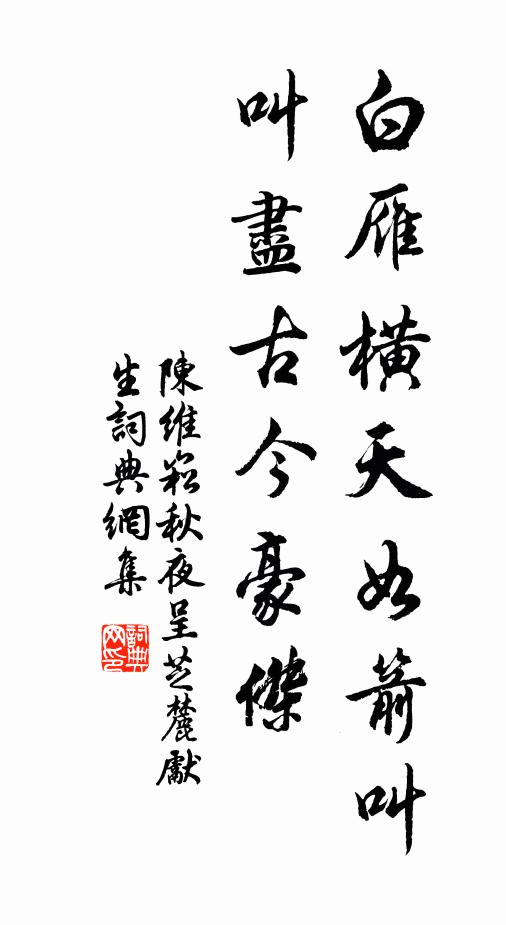 白雁橫天如箭叫
叫盡古今豪傑
陳維崧秋夜呈芝麓獻
生詞典網集
詞典
网印